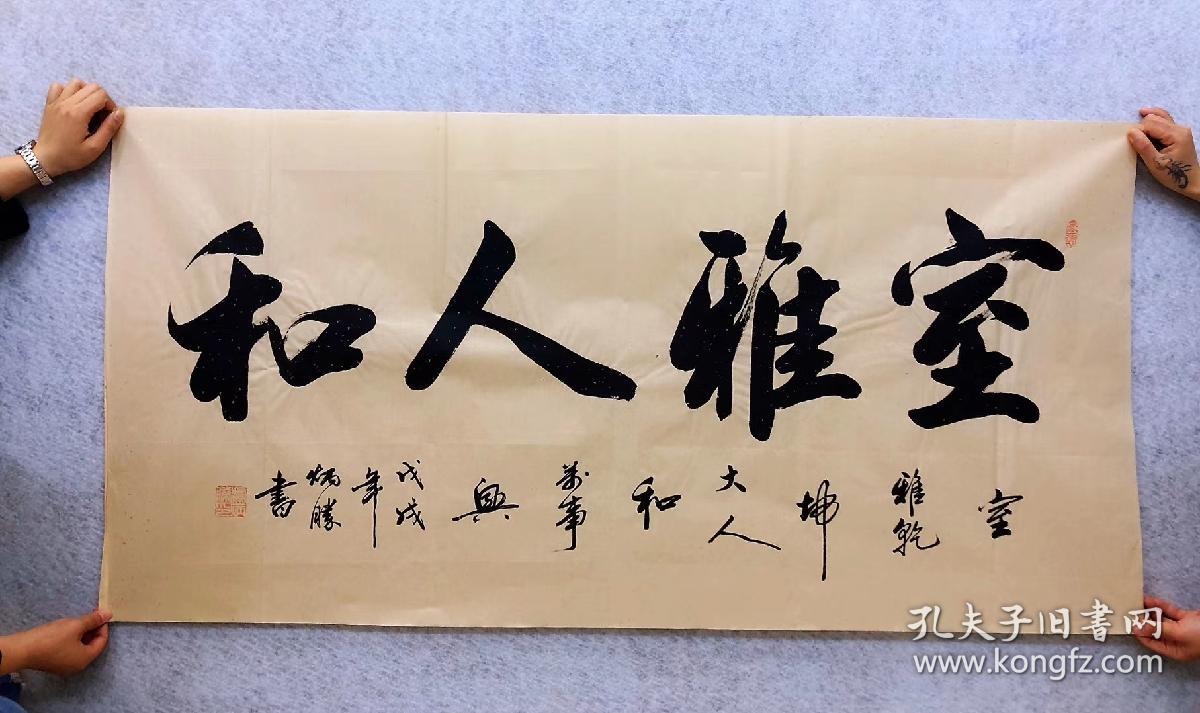 室雅人和
室
雅乾
坤
大人
和
萬事
興
戊戌
年
炳勝
書
孔夫子旧书网
www.kongfz.com